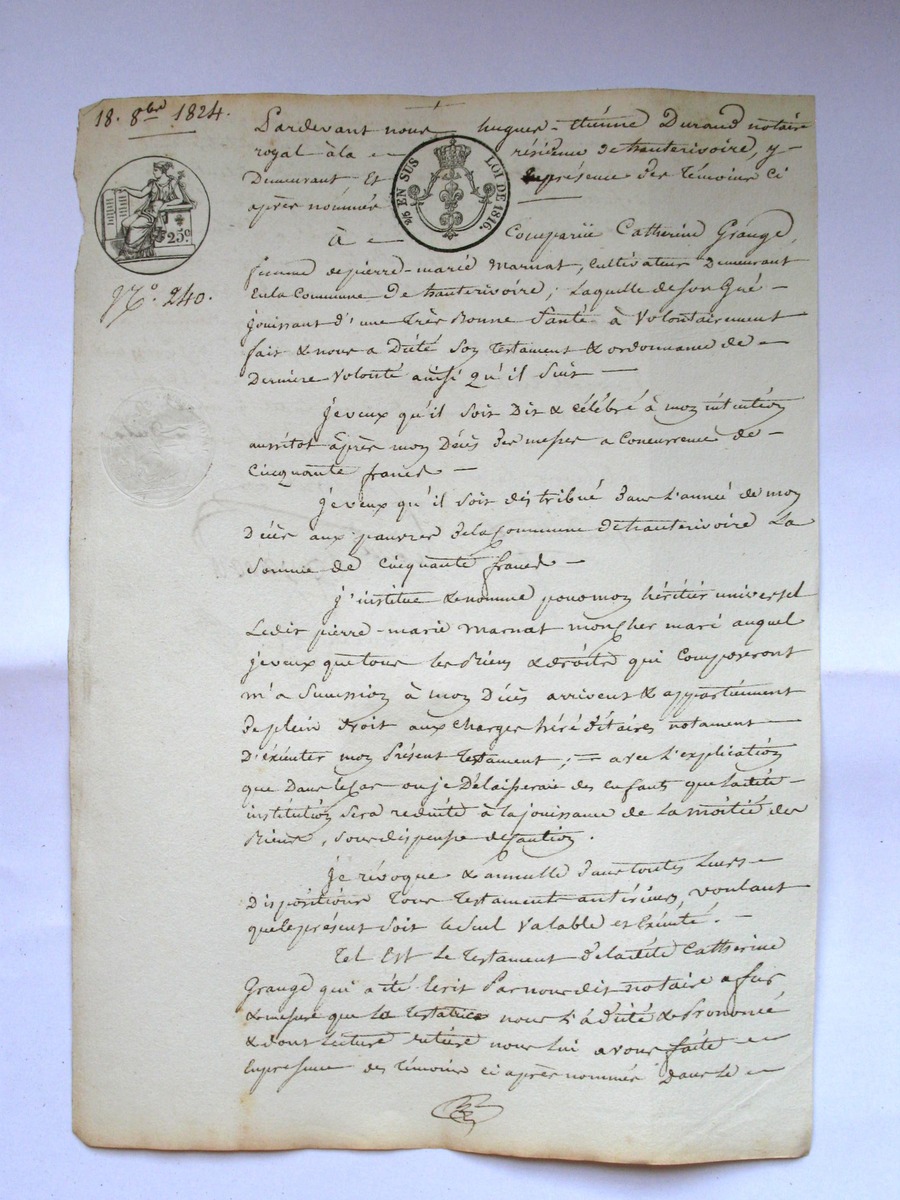 18. 8bre 1824.
Pardevant nous hugues-étienne Durand notaire
royal à la résidence de hauterivoire, y
Demeurant Et En présence des témoins ci
après nommés
⅖ EN SUS LOI DE 1816
25c
N°. 240.
À Comparüe Catherine Grange,
femme de pierre-marie Marnat, Cultivateur Demeurant
En la Commune De hauterivoire, Laquelle de son Gré
jouissant d'une très Bonne Santé à Volontairement
fait & nous a Dicté Son testament & ordonnance de
Dernière Volonté ainsi qu'il Suit
je veux qu'il soit Dit & Célébré à mon intention
aussitot àprès mon Décès des messes a Concurrence de
Cinquante francs
je veux qu'il soit distribué dans L'année de mon
Décès aux pauvres de la Commune de hauterivoire La
Somme de Cinquante francs
j'institue & nomme pour mon héritier universel
Ledit pierre-marie Marnat mon Cher mari auquel
je veux que tous les Biens & droits qui Composeront
m'a Succession à mon Décès arrivent & appartiennent
De plein Droit aux Charges héréditaires notament
D'éxécuter mon Présent Testament; = avec L'explication
que Dans le Cas ou je Délaisserais des enfants que ladite
institution Sera reduite à la jouissance de La moitié des
Biens, sous dispense de Caution.
Je révoque & annulle dans toutes leurs
Dispositions Tous Testaments antérieurs, voulant
que le présent Soit le Seul Valable et Exécuté.
Tel Est Le Testament de ladite Catherine
Grange qui a été Ecrit Par nous dit notaire a fur
& mesure que La Testatrice nous L'à dicté & Prononcé
& dont Lecture entière nous Lui avons faite
En présence des témoins ci après nommés Dans Le